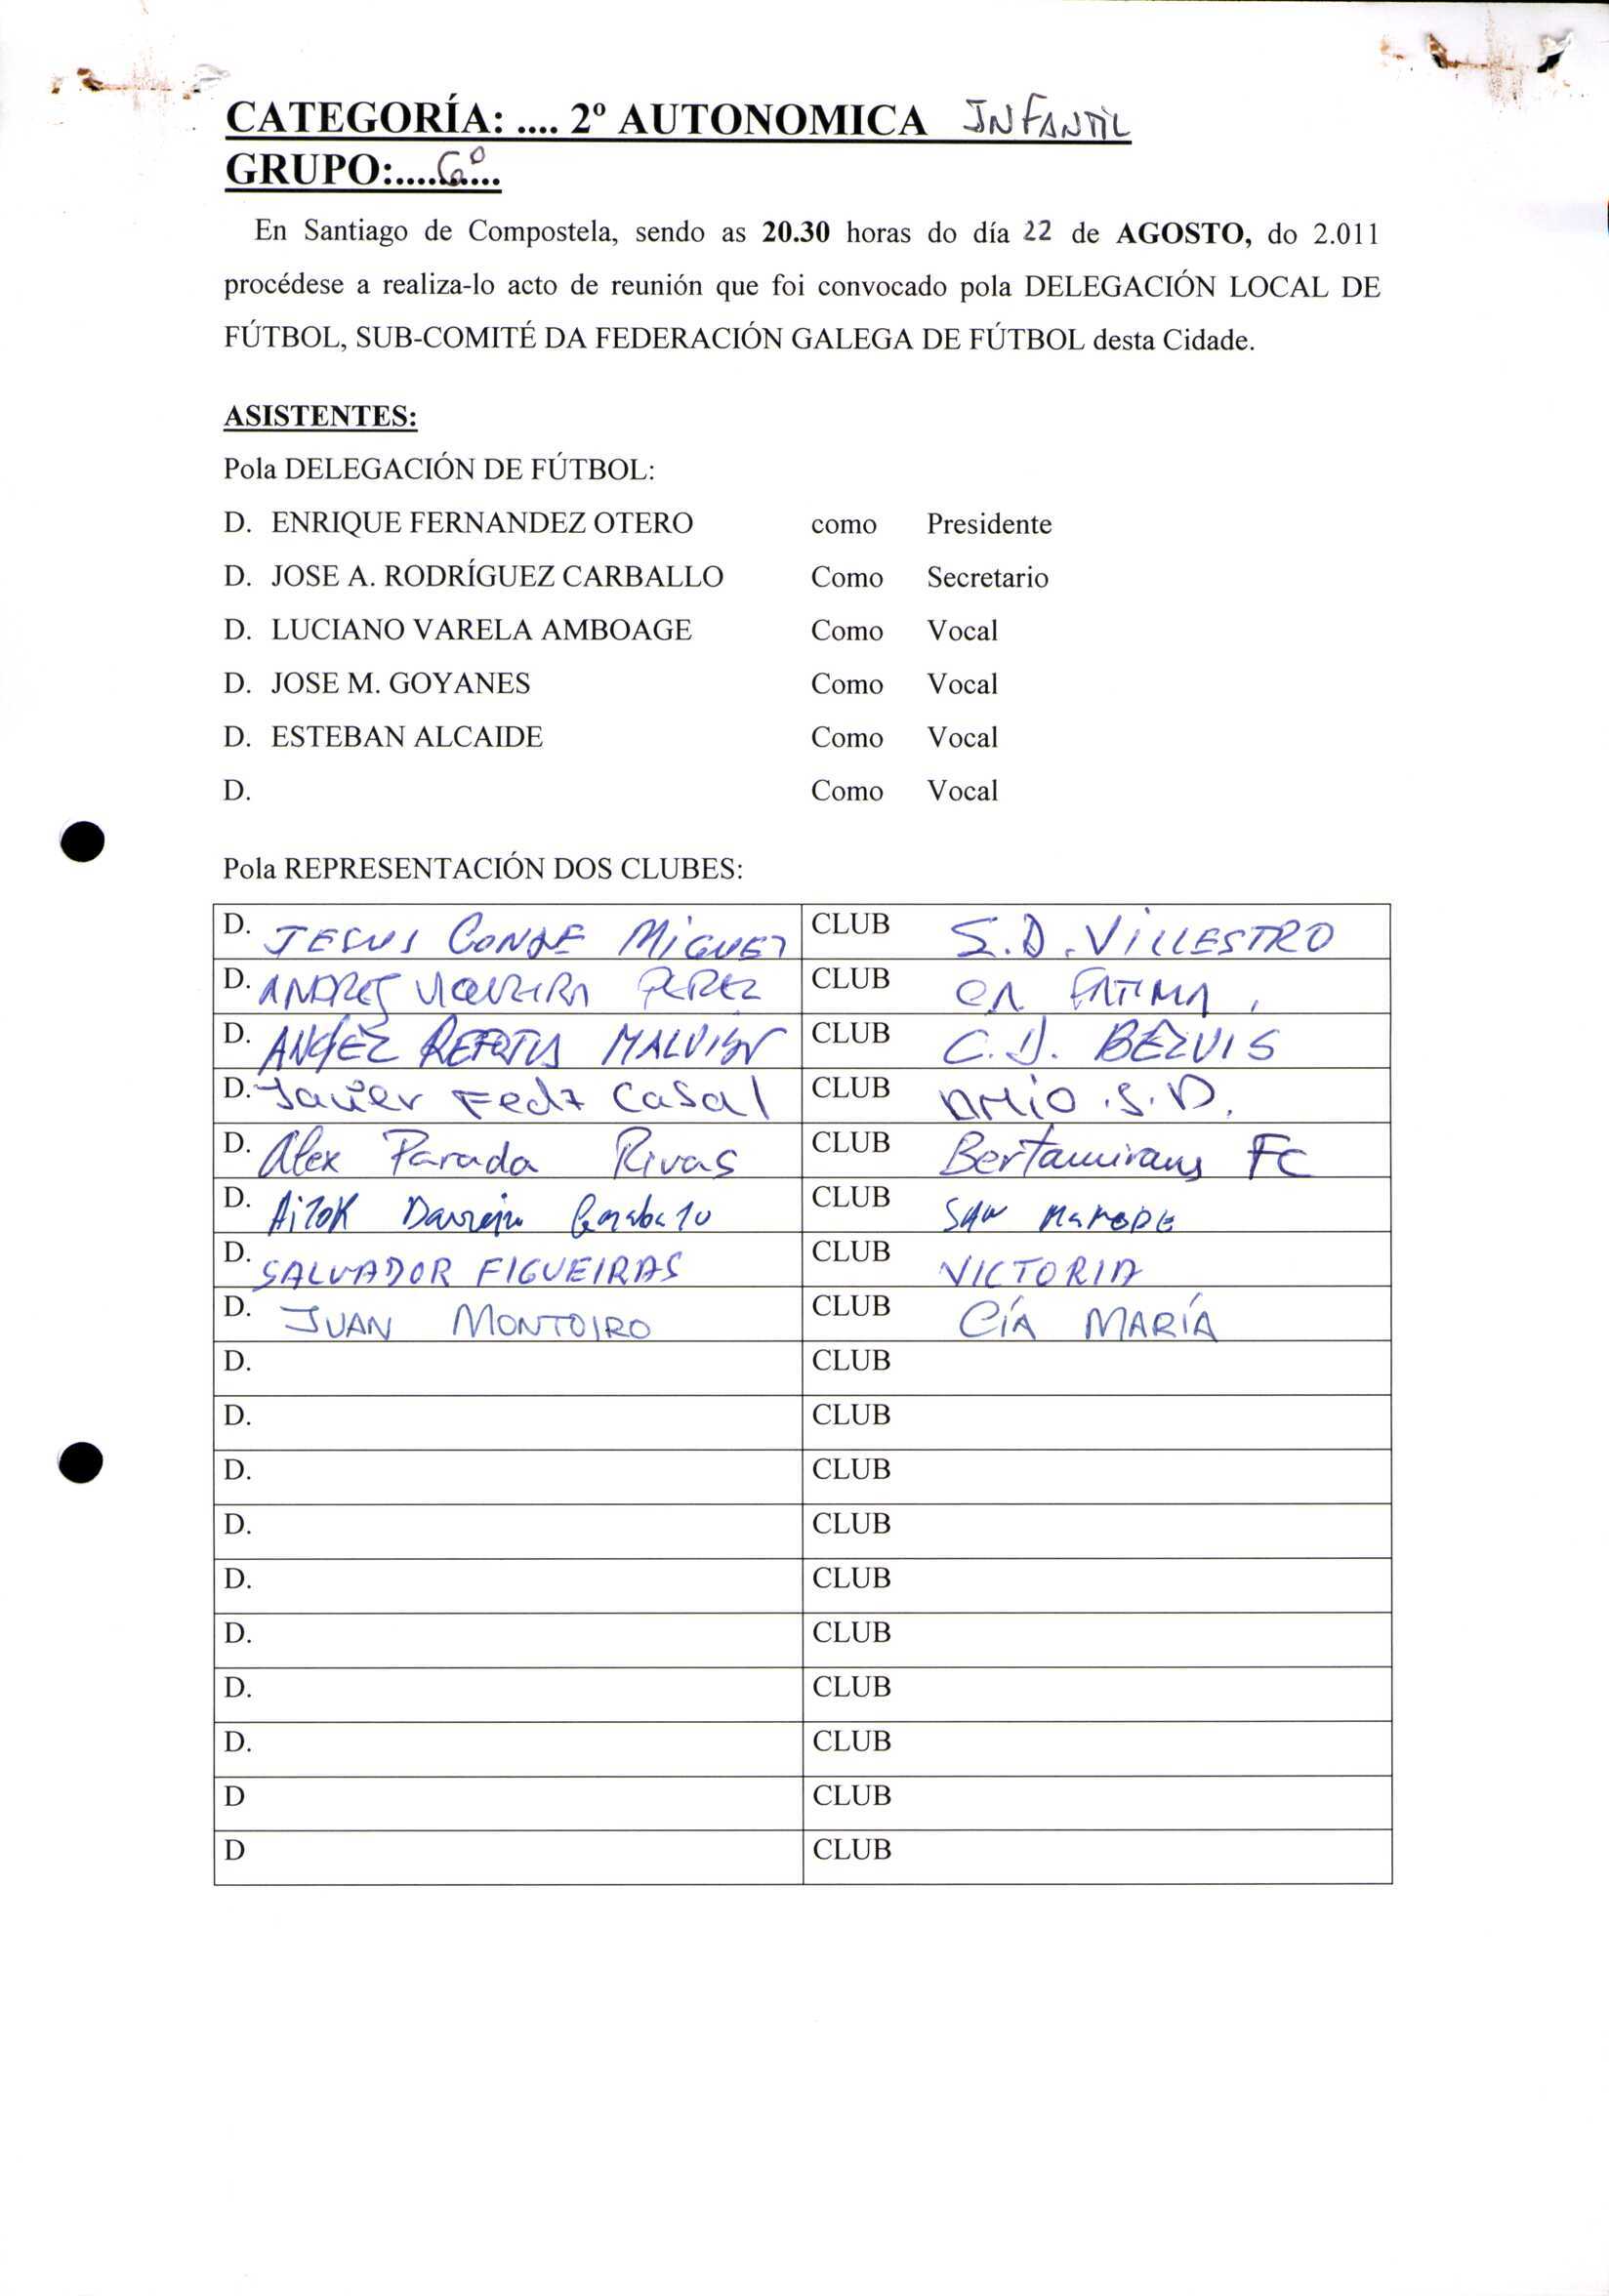 CATEGORÍA: .... 2º AUTONOMICA INFANTIL
GRUPO:.....6º....
En Santiago de Compostela, sendo as 20.30 horas do día 22 de AGOSTO, do 2.011
procédese a realiza-lo acto de reunión que foi convocado pola DELEGACIÓN LOCAL DE
FÚTBOL, SUB-COMITÉ DA FEDERACIÓN GALEGA DE FÚTBOL desta Cidade.
ASISTENTES:
Pola DELEGACIÓN DE FÚTBOL:
D. ENRIQUE FERNANDEZ OTERO como Presidente
D. JOSE A. RODRÍGUEZ CARBALLO Como Secretario
D. LUCIANO VARELA AMBOAGE Como Vocal
D. JOSE M. GOYANES Como Vocal
D. ESTEBAN ALCAIDE Como Vocal
D. Como Vocal
Pola REPRESENTACIÓN DOS CLUBES:
D. JESUS CONDE MIGUEZ CLUB S.D. VILLESTRO
D. ANDRES VIQUEIRA PEREZ CLUB FATIMA
D. ANGEL CLUB C.D. BELVIS
D. Javier Fedz Casal CLUB AMIO S.D.
D. Alex Parada Rivas CLUB Bertamirans FC
D. Aitor CLUB SAN MAMEDE
D. SALVADOR FIGUEIRAS CLUB VICTORIA
D. JUAN MONTOIRO CLUB CÍA MARÍA
D. CLUB
D. CLUB
D. CLUB
D. CLUB
D. CLUB
D. CLUB
D. CLUB
D. CLUB
D CLUB
D CLUB